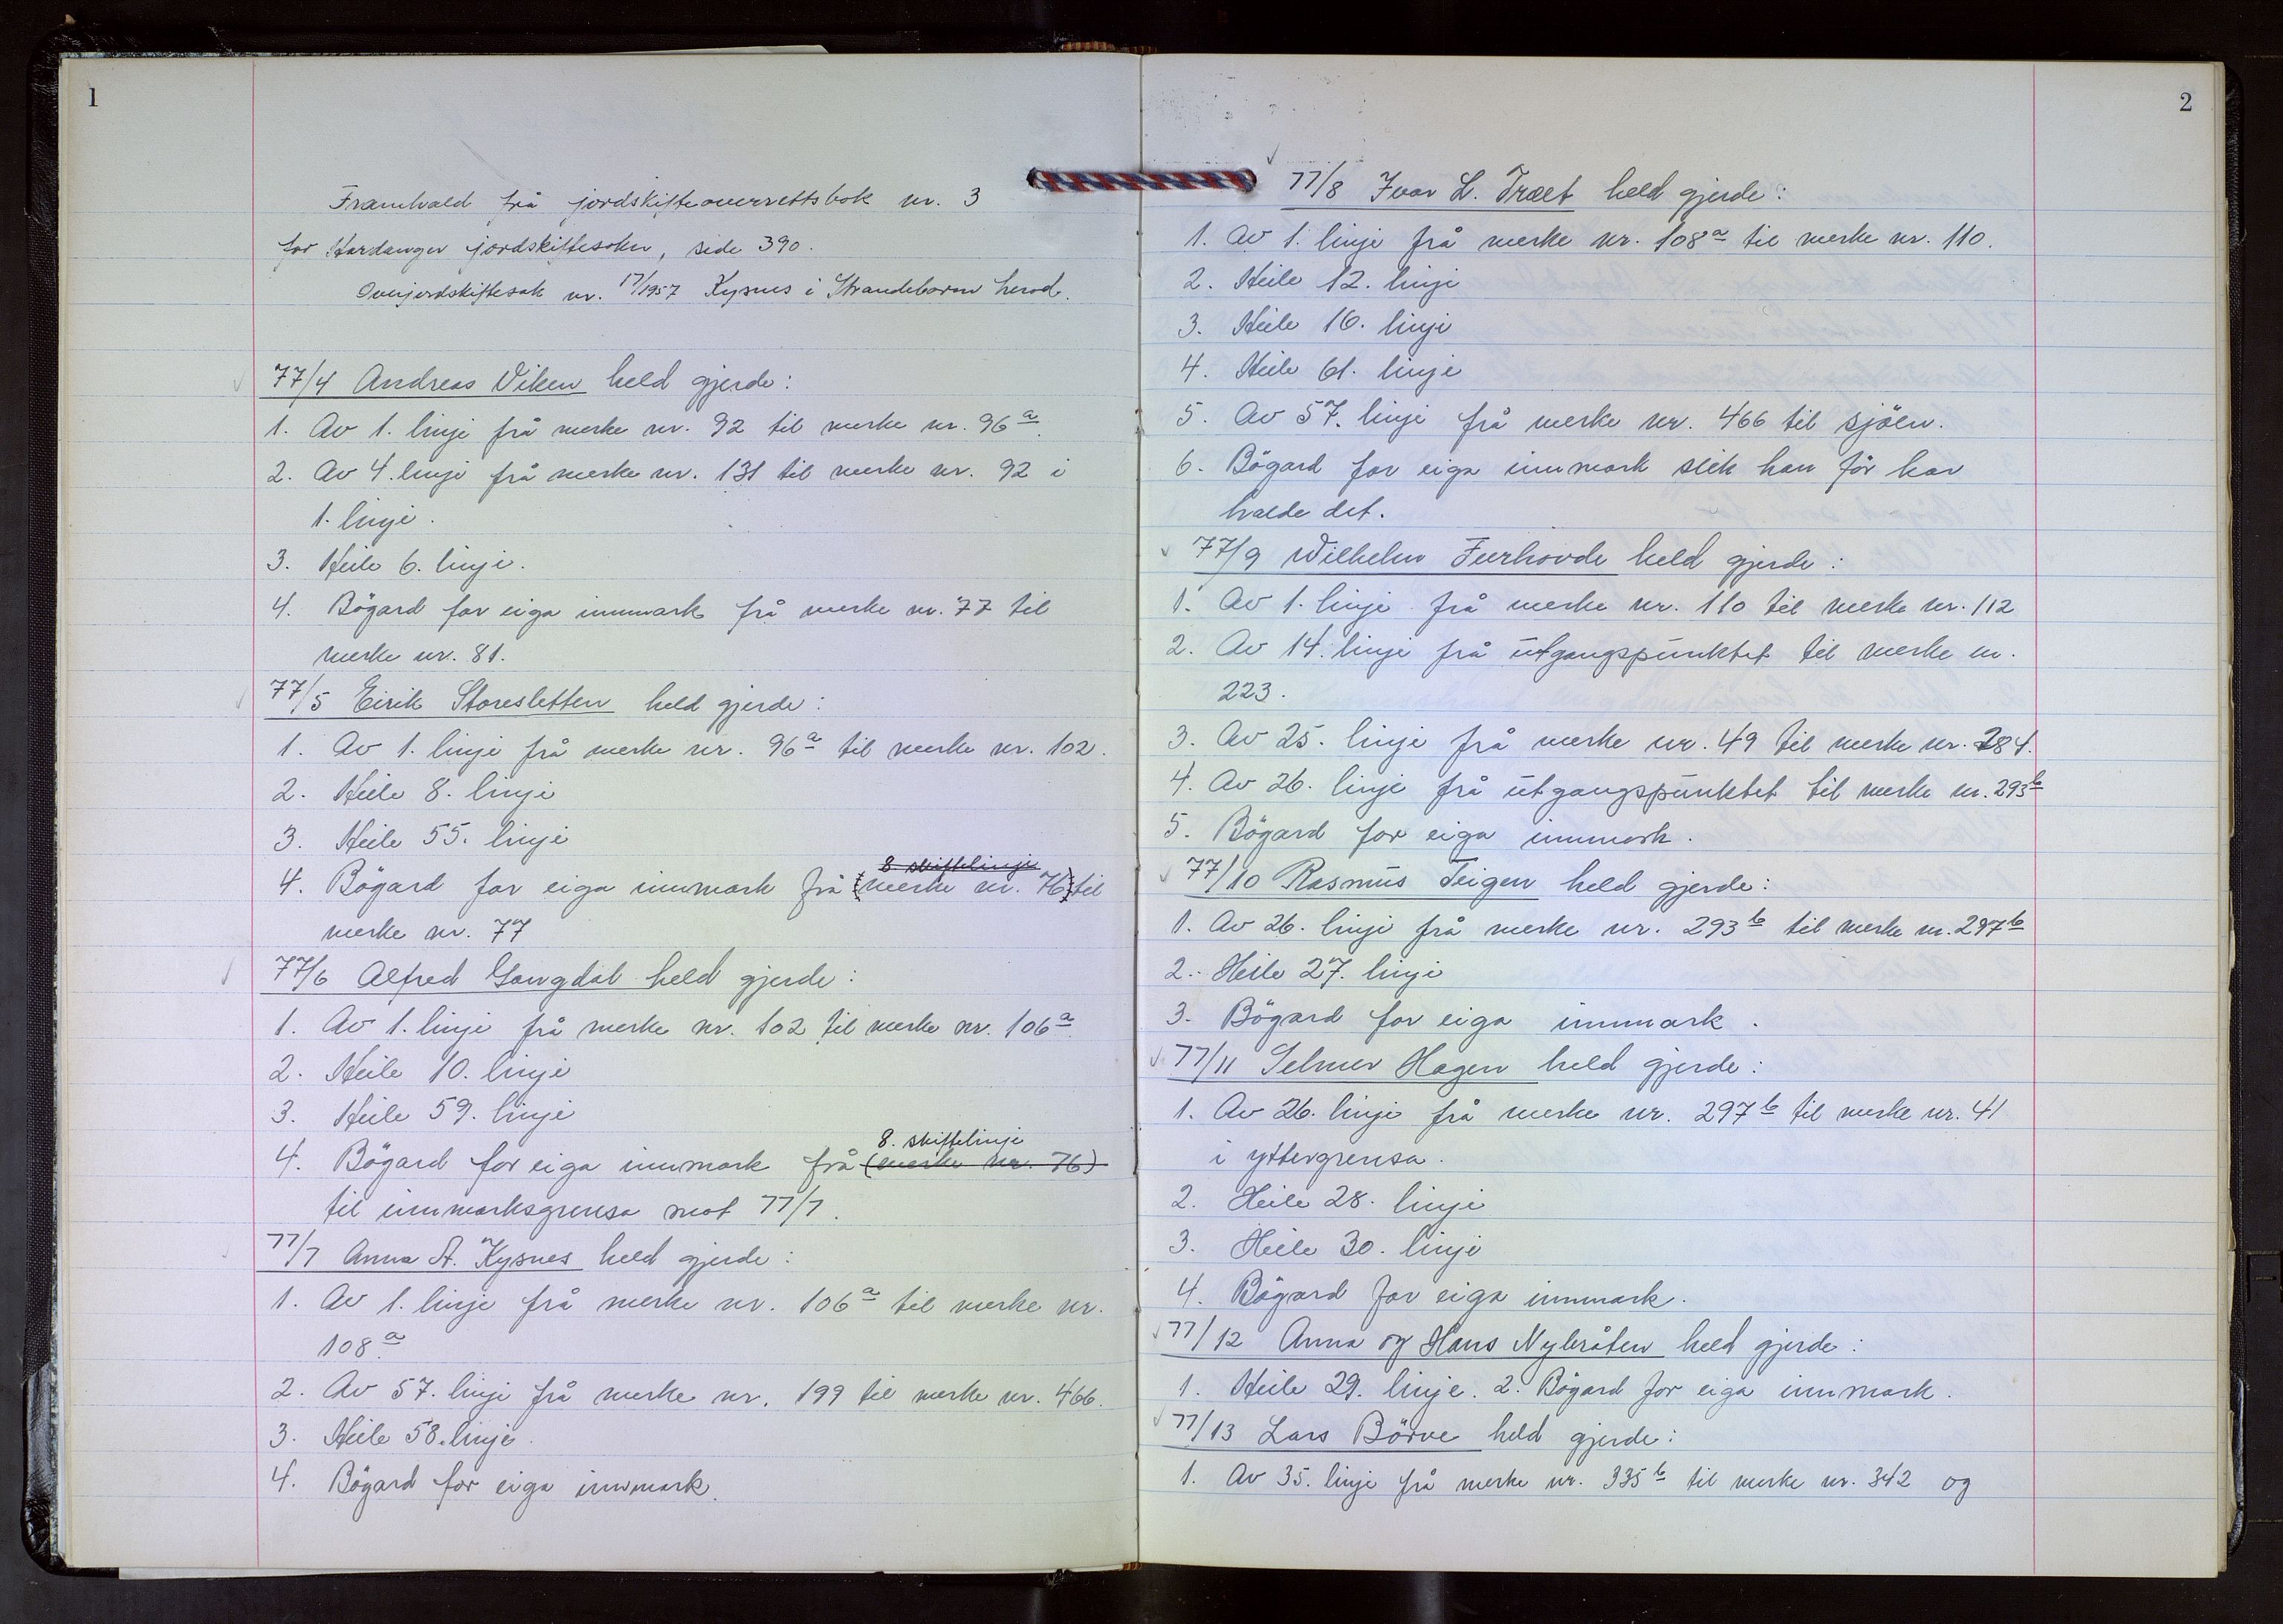 1
Framhald frå jordskifteoverrettsbok nr. 3
for Hardanger jordskiftesokn, side 390.
Overjordskiftesak nr. 17/1957 Kysnes i Strandebarm herad.
77/4 Andreas Viken held gjerde:
1. Av 1. linje frå merke nr. 92 til merke nr. 96a.
2. Av 4. linje frå merke nr. 131 til merke nr. 92 i
1. linje.
3. Heile 6. linje.
4. Bögard for eiga innmark frå merke nr. 77 til
merke nr. 81.
77/5 Eirik Storesletten held gjerde:
1. Av 1. linje frå merke nr. 96a til merke nr. 102.
2. Heile 8. linje
3. Heile 55. linje
8 skiftelinje
4. Bögard for eiga innmark frå (merke nr. 76) til
merke nr. 77
77/6 Alfred Gangdal held gjerde:
1. Av 1. linje frå merke nr. 102 til merke nr. 106a.
2. Heile 10. linje
3. Heile 59. linje
8. skiftelinje
4. Bögard for eiga innmark frå (merke nr. 76)
til innmarksgrensa mot 77/7.
77/7 Anna A. Kysnes held gjerde:
1. Av 1. linje frå merke nr. 106a til merke nr.
108a.
2. Av 57. linje frå merke nr. 199 til merke nr. 466.
3. Heile 58. linje.
4. Bögard for eiga innmark.
2
77/8 Ivar L. Træet held gjerde:
1. Av 1. linje frå merke nr. 108a til merke nr. 110.
2. Heile 12. linje
3. Heile 16. linje
4. Heile 61. linje
5. Av 57. linje frå merke nr. 466 til sjöen.
6. Bögard for eiga innmark slik han för har
halde det.
77/9 Wilhelm Furhovde held gjerde:
1. Av 1. linje frå merke nr. 110 til merke nr. 112
2. Av 14. linje frå utgangspunktet til merke nr.
223.
3. Av 25. linje frå merke nr. 49 til merke nr. 284.
4. Av 26. linje frå utgangspunktet til merke nr. 293b
5. Bögard for eiga innmark.
77/10 Rasmus Teigen held gjerde:
1. Av 26. linje frå merke nr. 293b til merke nr. 297b
2. Heile 27. linje
3. Bögard for eiga innmark.
77/11 Selmer Hagen held gjerde:
1. Av 26. linje frå merke nr. 297b til merke nr. 41
i yttergrensa.
2. Heile 28. linje
3. Heile 30. linje
4. Bögard for eiga innmark.
77/12 Anna og Hans Nybråten held gjerde:
1. Heile 29. linje. 2. Bögard for eiga innmark.
77/13 Lars Börve held gjerde:
1. Av 35. linje frå merke nr. 335b til merke nr. 342 og